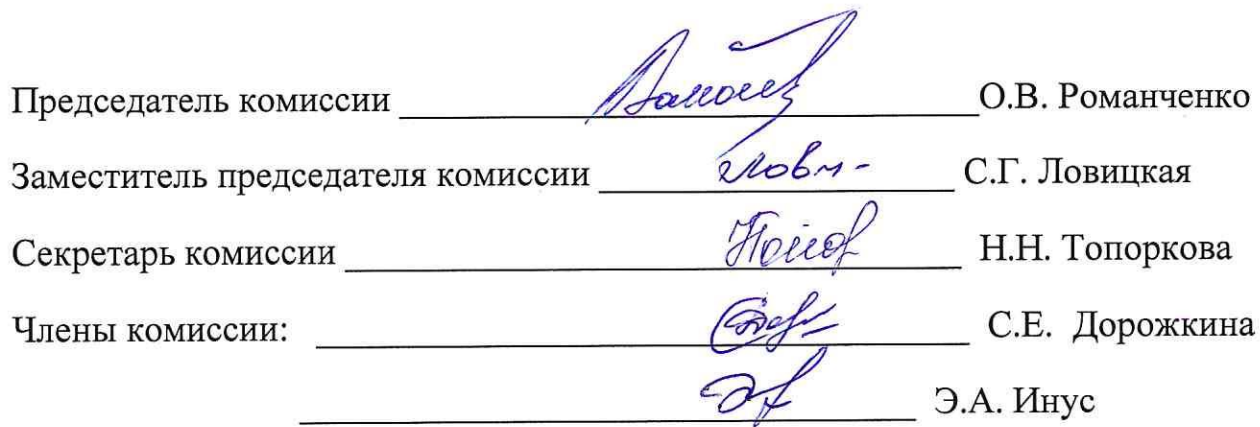 Председатель комиссии О.В. Романченко
Заместитель председателя комиссии С.Г. Ловицкая
Секретарь комиссии Н.Н. Топоркова
Члены комиссии: С.Е. Дорожкина
Э.А. Инус